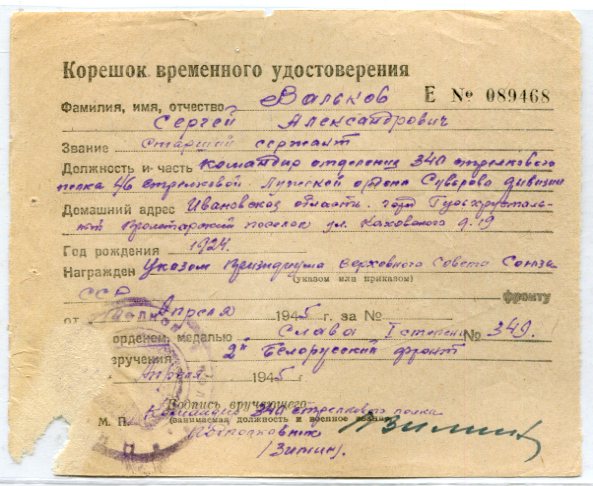 Корешок временного удостоверения
Фамилия, имя, отчество Вальков Е № 089468
Сергей Александрович
Звание Старший сержант
Должность и часть командир отделения 340 стрелкового
полка 46 стрелковой Лужской ордена Суворова дивизии
Домашний адрес Ивановской области. город Гусь-хрусталь-
Пролетарский поселок ул. Каховского д. 9
Год рождения 1924.
Награжден Указом Президиума Верховного Совета Союза
(указом или приказом)
ССР фронту
от апреля 1945 г. за №
орденом, медалью Слава I степени № 349.
вручения 2й Белорусский фронт
апреля 1945 г.
Подпись вручающего
Командир 340 стрелкового полка
М. П. (занимаемая должность и военное звание)
Подполковник Зимин
/Зимин/.